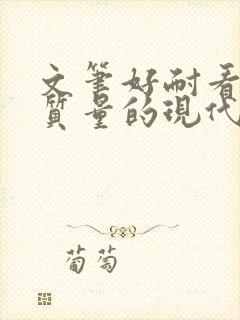 文筆好耐看
質量的現代
葡萄